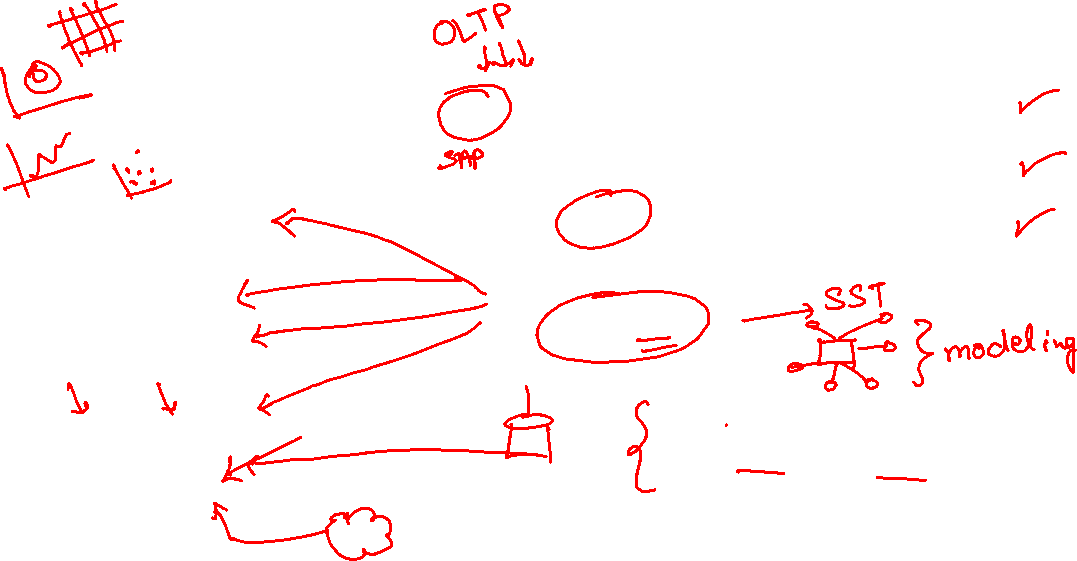 OLTP
SAP
SST
modeling